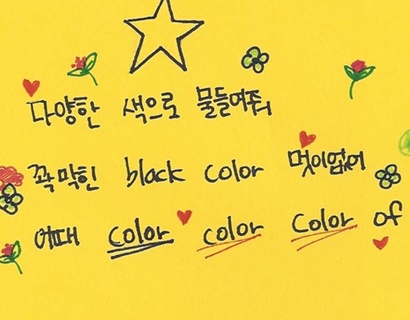 다양한 색으로 물들여줘
꽉막힌 black color 멋이없어
어때 color color color of